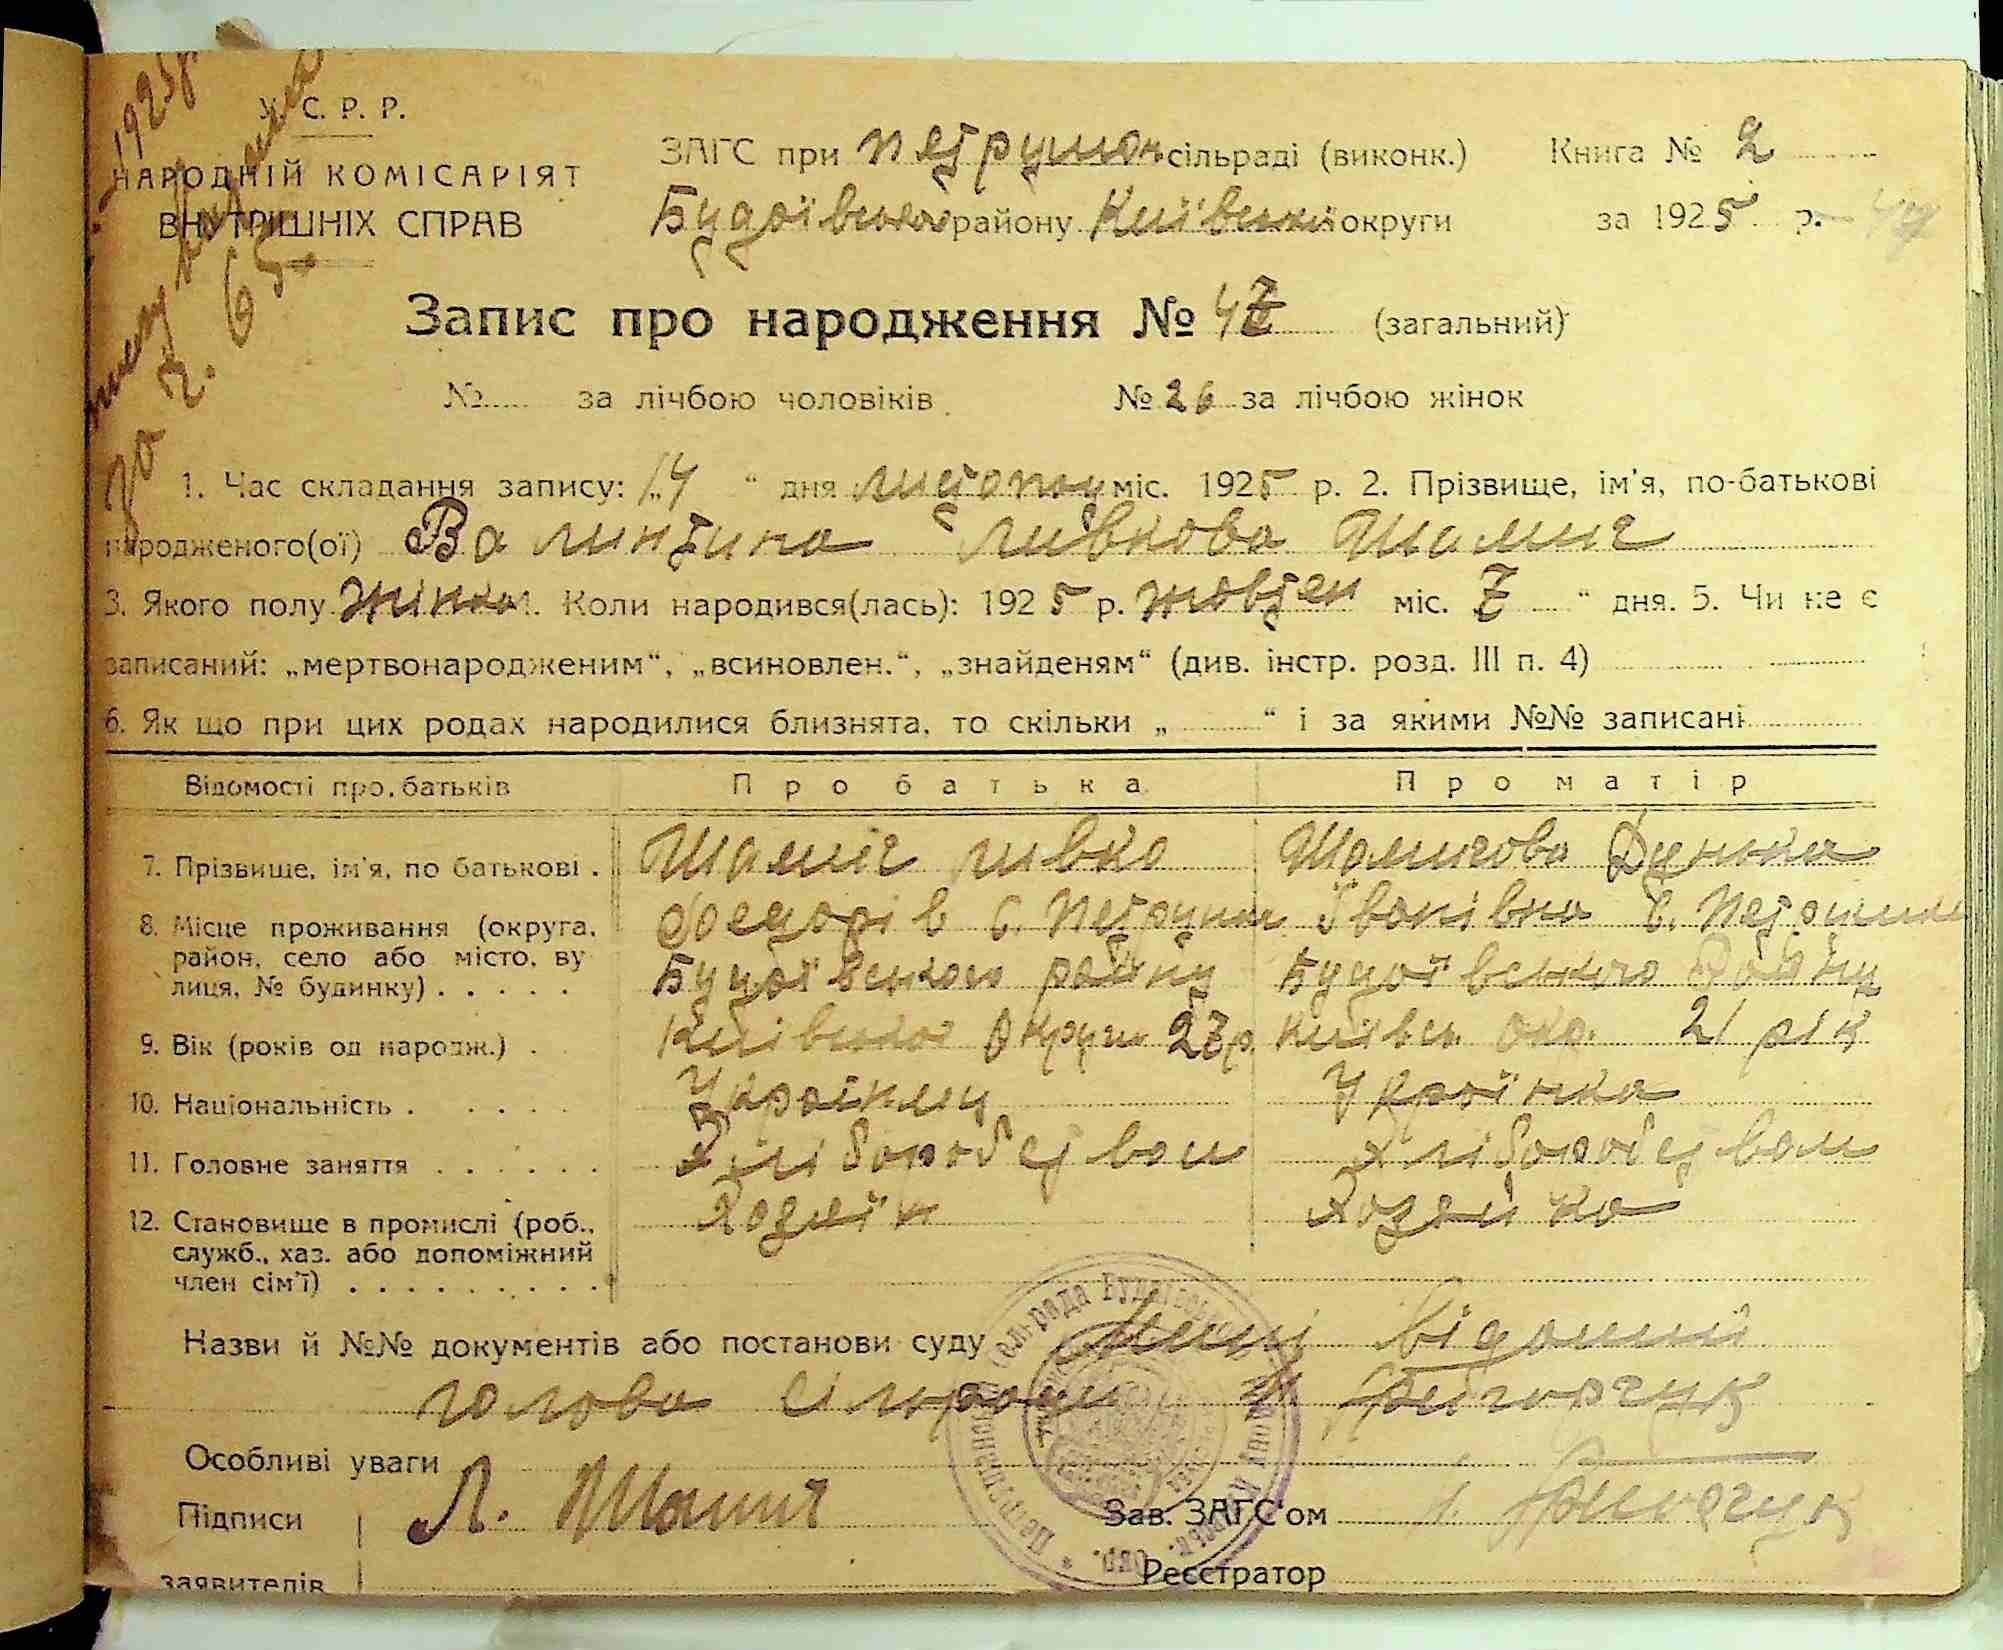 У. С. Р. Р.
НАРОДНІЙ КОМІСАРІЯТ
ВНУТРІШНІХ СПРАВ
ЗАГС при Петрушан сільраді (виконк.) Книга № 2
Будаївського району Київської округи за 1925 р. 47
Запис про народження № 47 (загальний)
№ за лічбою чоловіків. № 26 за лічбою жінок
1. Час складання запису: „14 “ дня листопаду міс. 1925 р. 2. Прізвище, ім'я, по-батькові
народженого(ої) Валинтина Ливкова Шамич
3. Якого полу Жіноч. Коли народився(лась): 1925 р. жовтен міс. 7 “ дня. 5. Чи не є
записаний: „мертвонародженим“, „всиновлен.“, „знайденям“ (див. інстр. розд. III п. 4)
6. Як що при цих родах народилися близнята, то скільки „ “ і за якими №№ записані
Відомості про батьків Про батька Про матір
7. Прізвище, ім'я, по батькові . Шаміч Ливко Шамичова Дунька
8. Місце проживання (округа, Федорів с. Петрушки Іванівна с. Петрушки
район, село або місто, ву Будаївського району Будаївського району
лиця, № будинку) . . . . .
9. Вік (років од народж.) . Київської округи 27 р. Київськ. окр. 21 рік
10. Національність . . . . . Українец Українка
11. Головне заняття . . . . . . Хліборобством Хліборобством
12. Становище в промислі (роб., Хозяїн Хозяйка
служб., хаз. або допоміжний
член сім'ї) . . . . . . . . . .
Назви й №№ документів або постанови суду Мені відомий
голова сільради Григорчук
Особливі уваги
Підписи Л. Шамич Зав. ЗАГС'ом Григорчук
заявителів Реєстратор